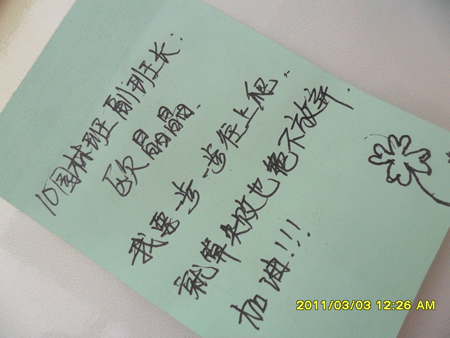 10园林班副班长:
欧晶晶
我要一步一步往上爬.
就算失败也绝不放弃.
加油!!!
2011/03/03 12:26 AM